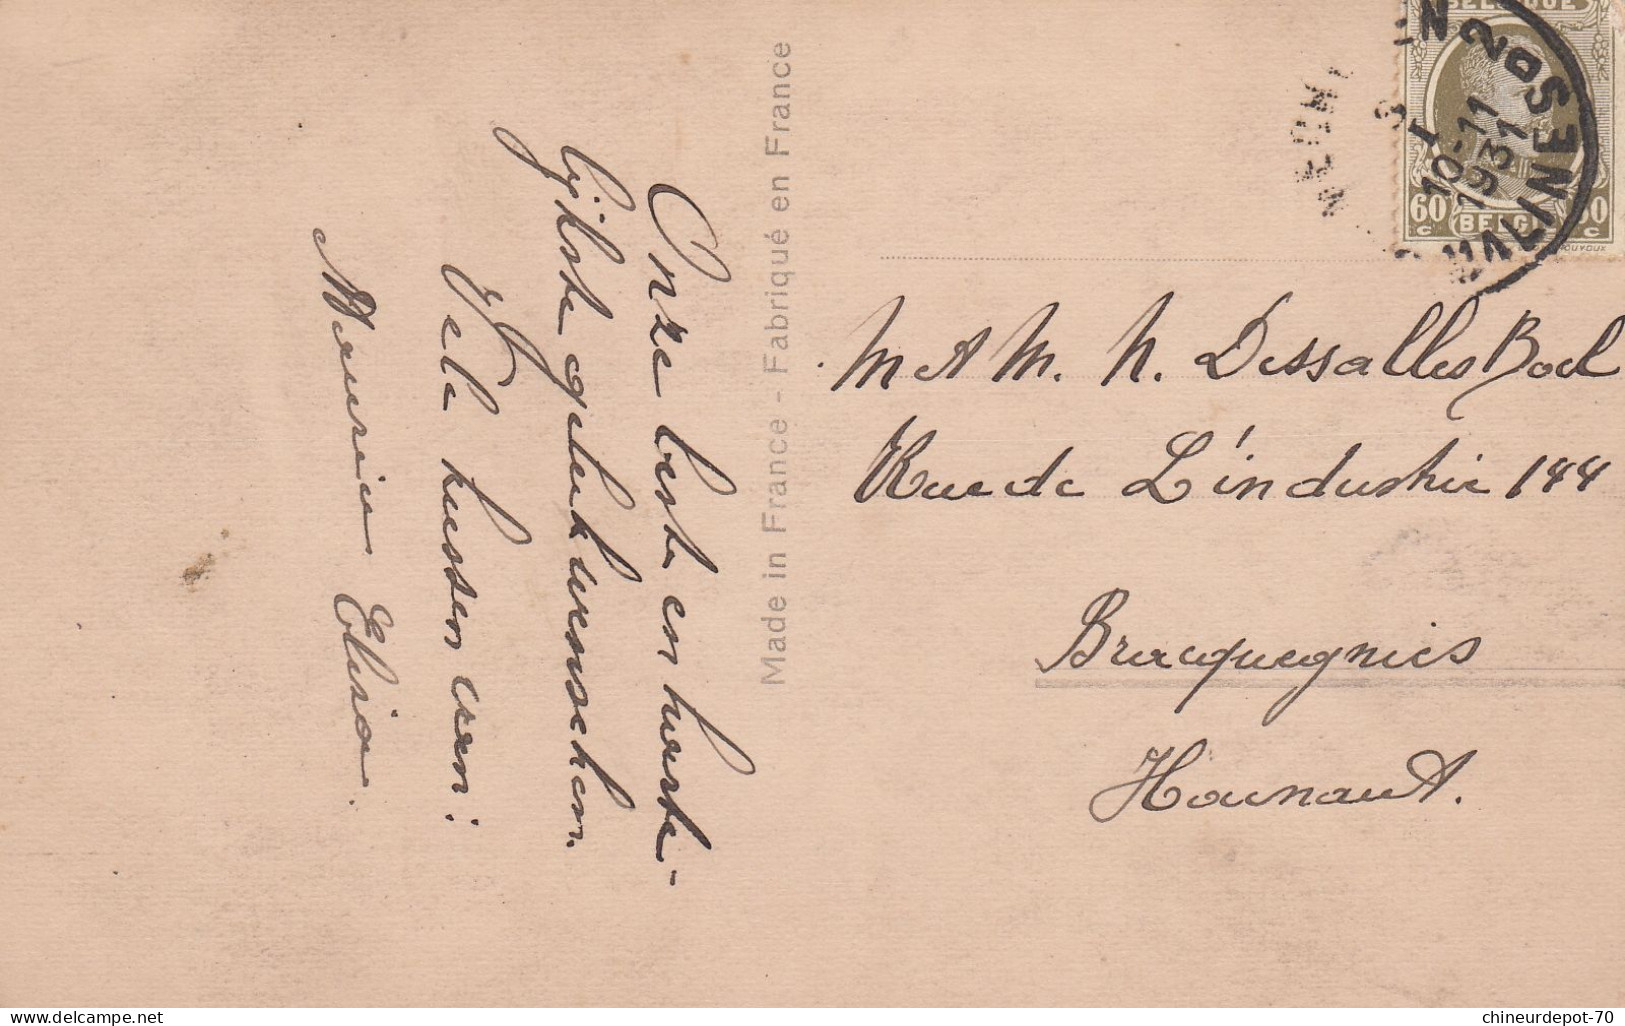 Onze beste en harte-
lijkste gelukwenschen.
Vele kussen van:
Maurice Elisa.
Made in France - Fabriqué en France
BELGIQUE
60 c
BELGI
MALINES
2 D
1
10-11
1931
M A M. N. Dessalles Boel
Rue de L'industrie 144
Bracquegnies
Hainaut.
chineurdepot-70